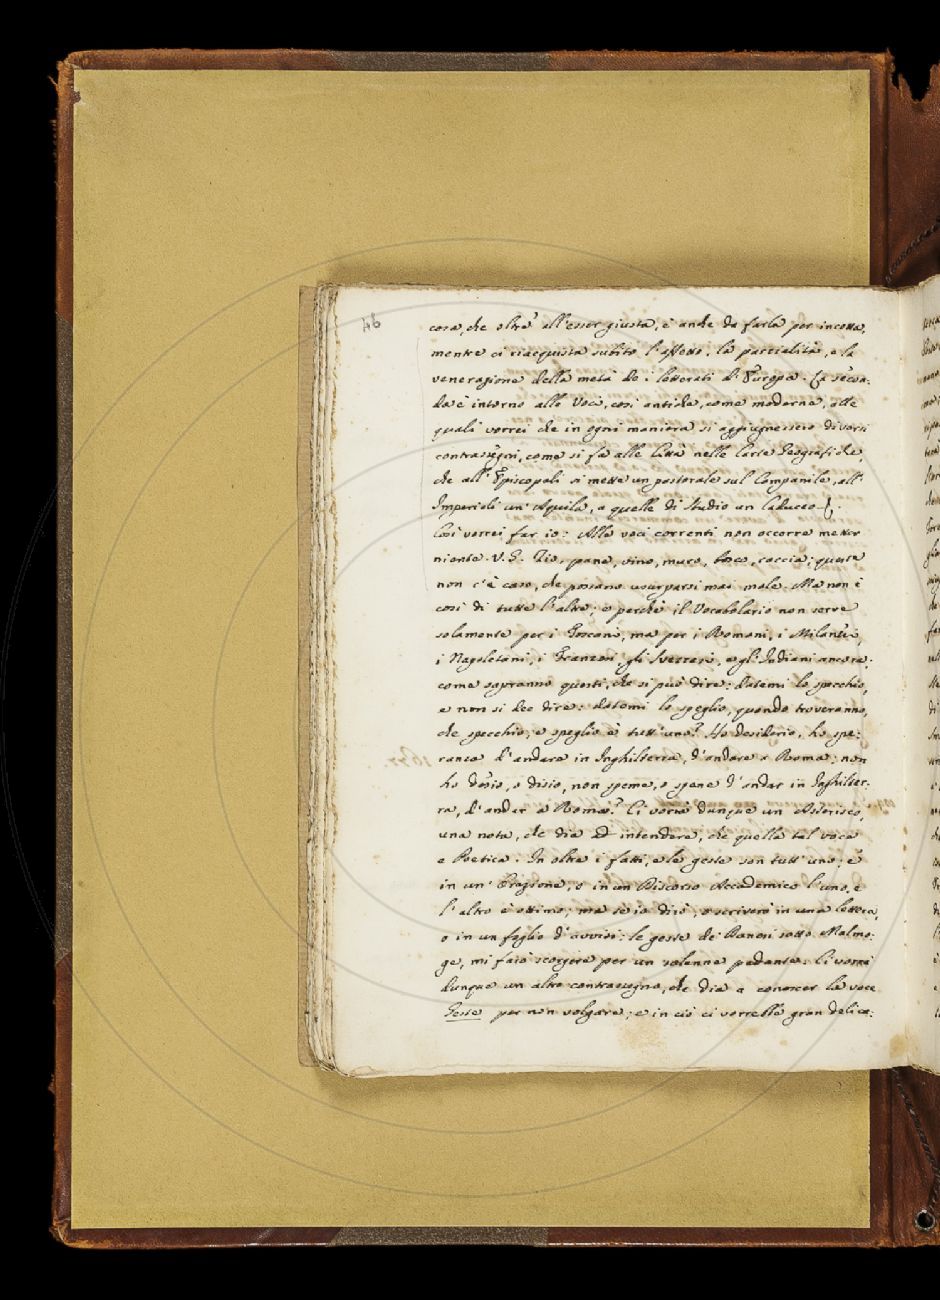 46
cosa, che oltre all'esser giusta, è anche da farla per incetta,
mentre ci riacquista subito l'affetto, la parzialità, e la
venerazione della metà de i letterati d'Europa. La secon:
da è intorno alle Voci, così antiche, come moderne, alle
quali vorrei che in ogni maniera si aggiugnessero diversi
contrassegni, come si fa alle Città nelle Carte Geografiche,
che all'Episcopali si mette un pastorale sul Campanile, all'
Imperiali un'Aquila, a quelle di Studio un Caduceo.
Così vorrei far io: Alle voci correnti non occorre metter
niente. V. G. Dio, pane, vino, muro, bosco, caccia; queste
non c'è caso, che possano usurparsi mai male. Ma non è
così di tutte l'altre; e perchè il Vocabolario non serve
solamente per i Toscani, ma per i Romani, i Milanesi,
i Napoletani, i Franzesi, gli Svezzesi, e gl'Indiani ancora:
come sapranno questi, che si può dire: datemi lo specchio,
e non si dee dire: datemi lo speglio, quando troveranno,
che specchio, e speglio è tutt'uno? Ho desiderio, ho spe:
ranza d'andare in Inghilterra, d'andare a Roma: non
ho desio, o disio, non speme, o spene d'andar in Inghilter:
ra, d'andar a Roma? Ci vorria dunque un Asterisco,
una nota, che dia ad intendere, che quella tal voce
è Poetica. In oltre i fatti, e le geste son tutt'uno: e
in un'Orazione, o in un Discorso Accademico l'uno, e
l'altro è ottimo; ma se io dirò, o scriverò in una lettera,
o in un foglio d'avvisi: le geste de' Danesi sotto Malmo:
ge, mi farò scorgere per un solenne pedante. Ci vorrei
dunque un altro contrassegno, che dia a conoscer la voce
Geste per non volgare; e in ciò ci vorrebbe gran delica: